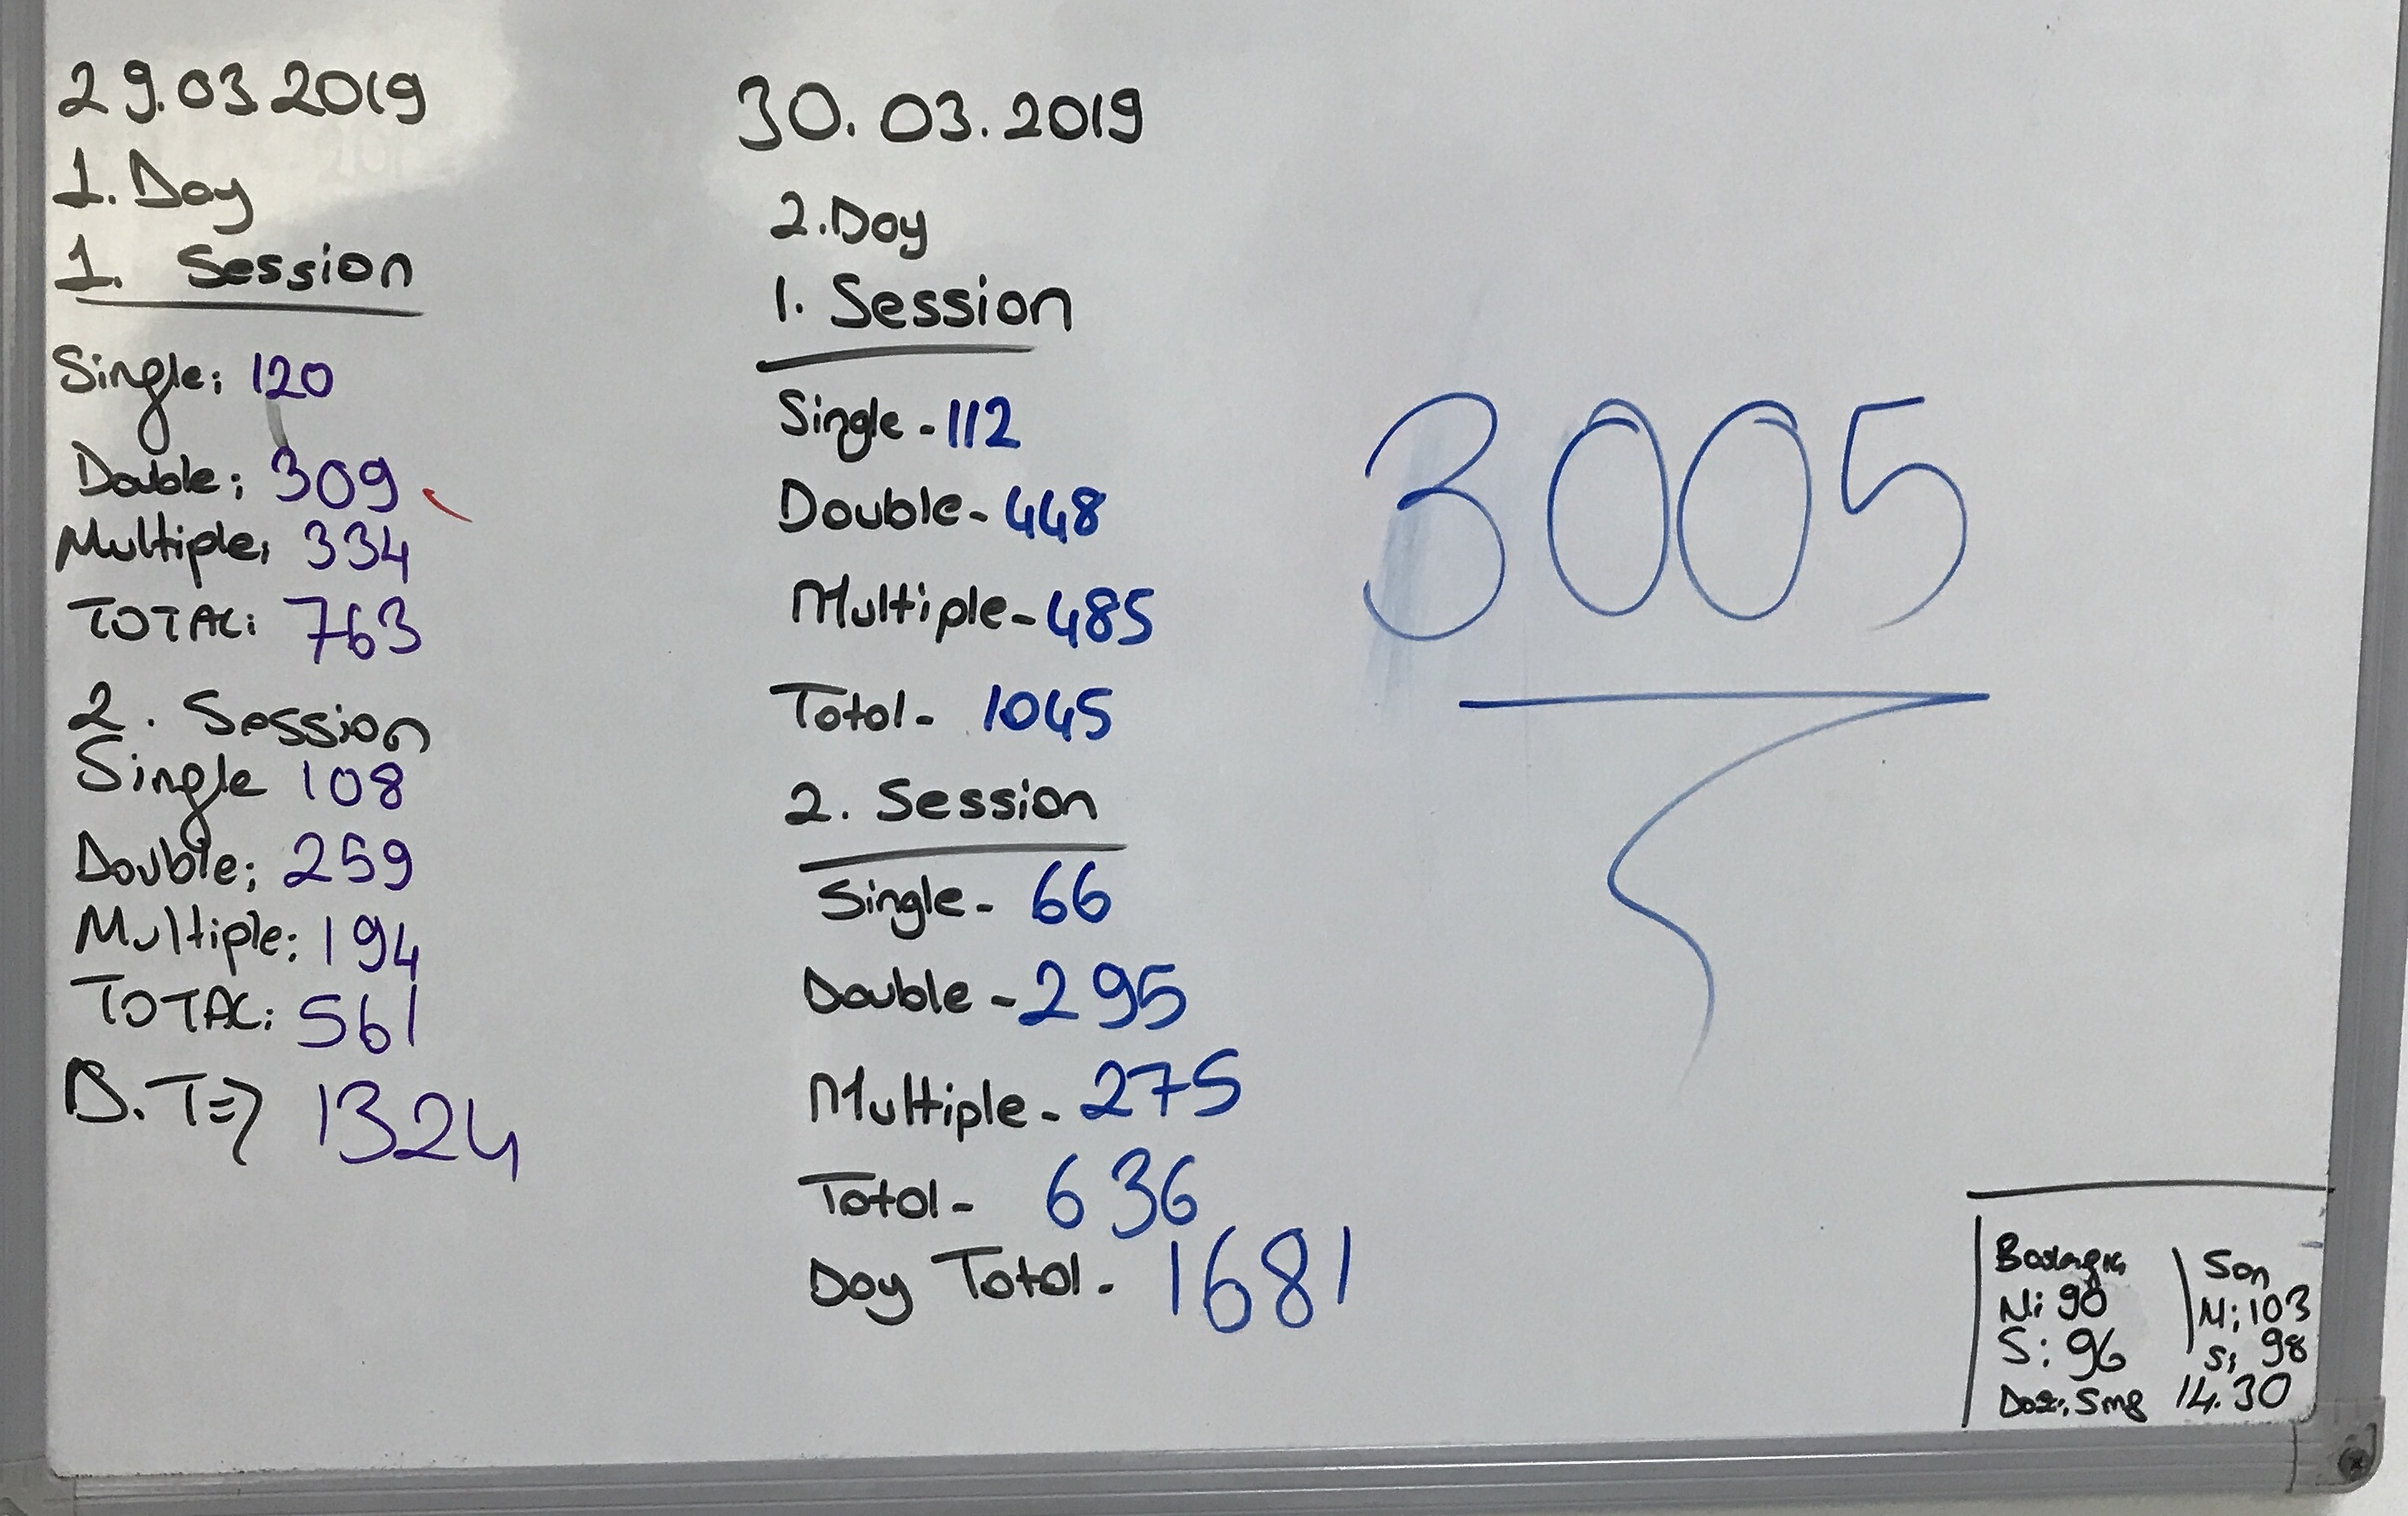 29.03.2019
1. Day
1. Session
Single: 120
Double: 309
Multiple: 334
TOTAL: 763
2. Session
Single 108
Double: 259
Multiple: 194
TOTAL: 561
B.T=> 1324
30.03.2019
2. Day
1. Session
Single - 112
Double - 448
Multiple - 485
Total - 1045
2. Session
Single - 66
Double - 295
Multiple - 275
Total - 636
Day Total - 1681
3005
Son
N: 90
M: 103
S: 96
S: 98
Doz: 5mg
14.30